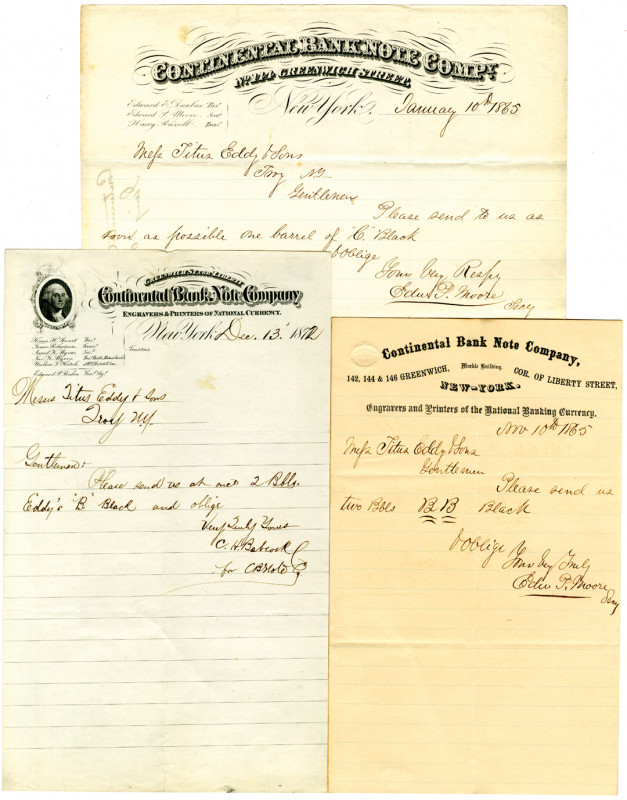 CONTINENTAL BANK NOTE COMPY.
No. 144 GREENWICH STREET.
New York, January 10th 1865
Edward E. Dunbar Pres.
Edward P. Moore Sec.
Harry Russell Treas.
Mess Titus Eddy & Sons
Troy NY
Gentlemen
Please send to us as
soon as possible one barrel of "C." Black
& Oblige
Yours Very Respy
Edw P. Moore
Secy
GREENWICH ST. COR. LIBERTY
Continental Bank Note Company
ENGRAVERS & PRINTERS OF NATIONAL CURRENCY.
New York Dec. 13' 1872
Trustees
Messrs Titus Eddy & Sons
Troy NY.
Gentlemen
Please send us at once 2 Bbls.
Eddy's "B" Black and oblige
Very Truly Yours
C. H. Babcock
for C B Note Co
Continental Bank Note Company,
142, 144 & 146 GREENWICH, Marble Building. COR. OF LIBERTY STREET,
NEW-YORK.
Engravers and Printers of the National Banking Currency.
Nov 10th 1865
Mess Titus Eddy & Sons
Gentlemen
Please send us
two Bbls B B Black
& oblige
Yours Very Truly
Edw P. Moore
Secy